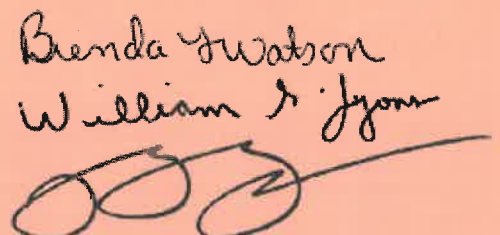 Brenda Y Watson
William G. Lyons